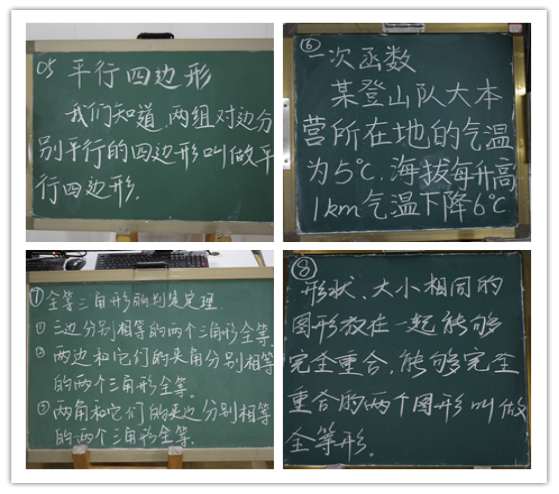 05 平行四边形
我们知道,两组对边分
别平行的四边形叫做平
行四边形.
⑥
一次函数
某登山队大本
营所在地的气温
为5℃.海拔每升高
1km气温下降6℃
⑦全等三角形的判定定理.
①三边分别相等的两个三角形全等.
②两边和它们的夹角分别相等
的两个三角形全等.
③两角和它们的夹边分别相等
的两个三角形全等.
⑧
形状、大小相同的
图形放在一起能够
完全重合,能够完全
重合的两个图形叫做
全等形.